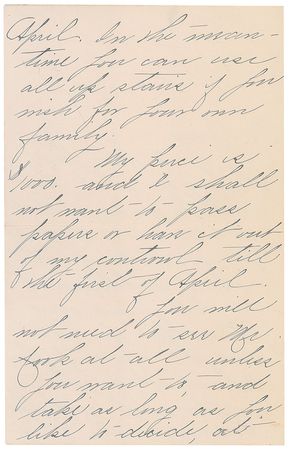 April. In the mean-
time you can use
all up stairs if you
wish for your own
family.
My price is
$1000. and I shall
not want to pass
papers or have it out
of my controwl till
the first of April.
You will
not need to see Mr.
Cook at all unless
you want to, and
take as long as you
like to decide, at